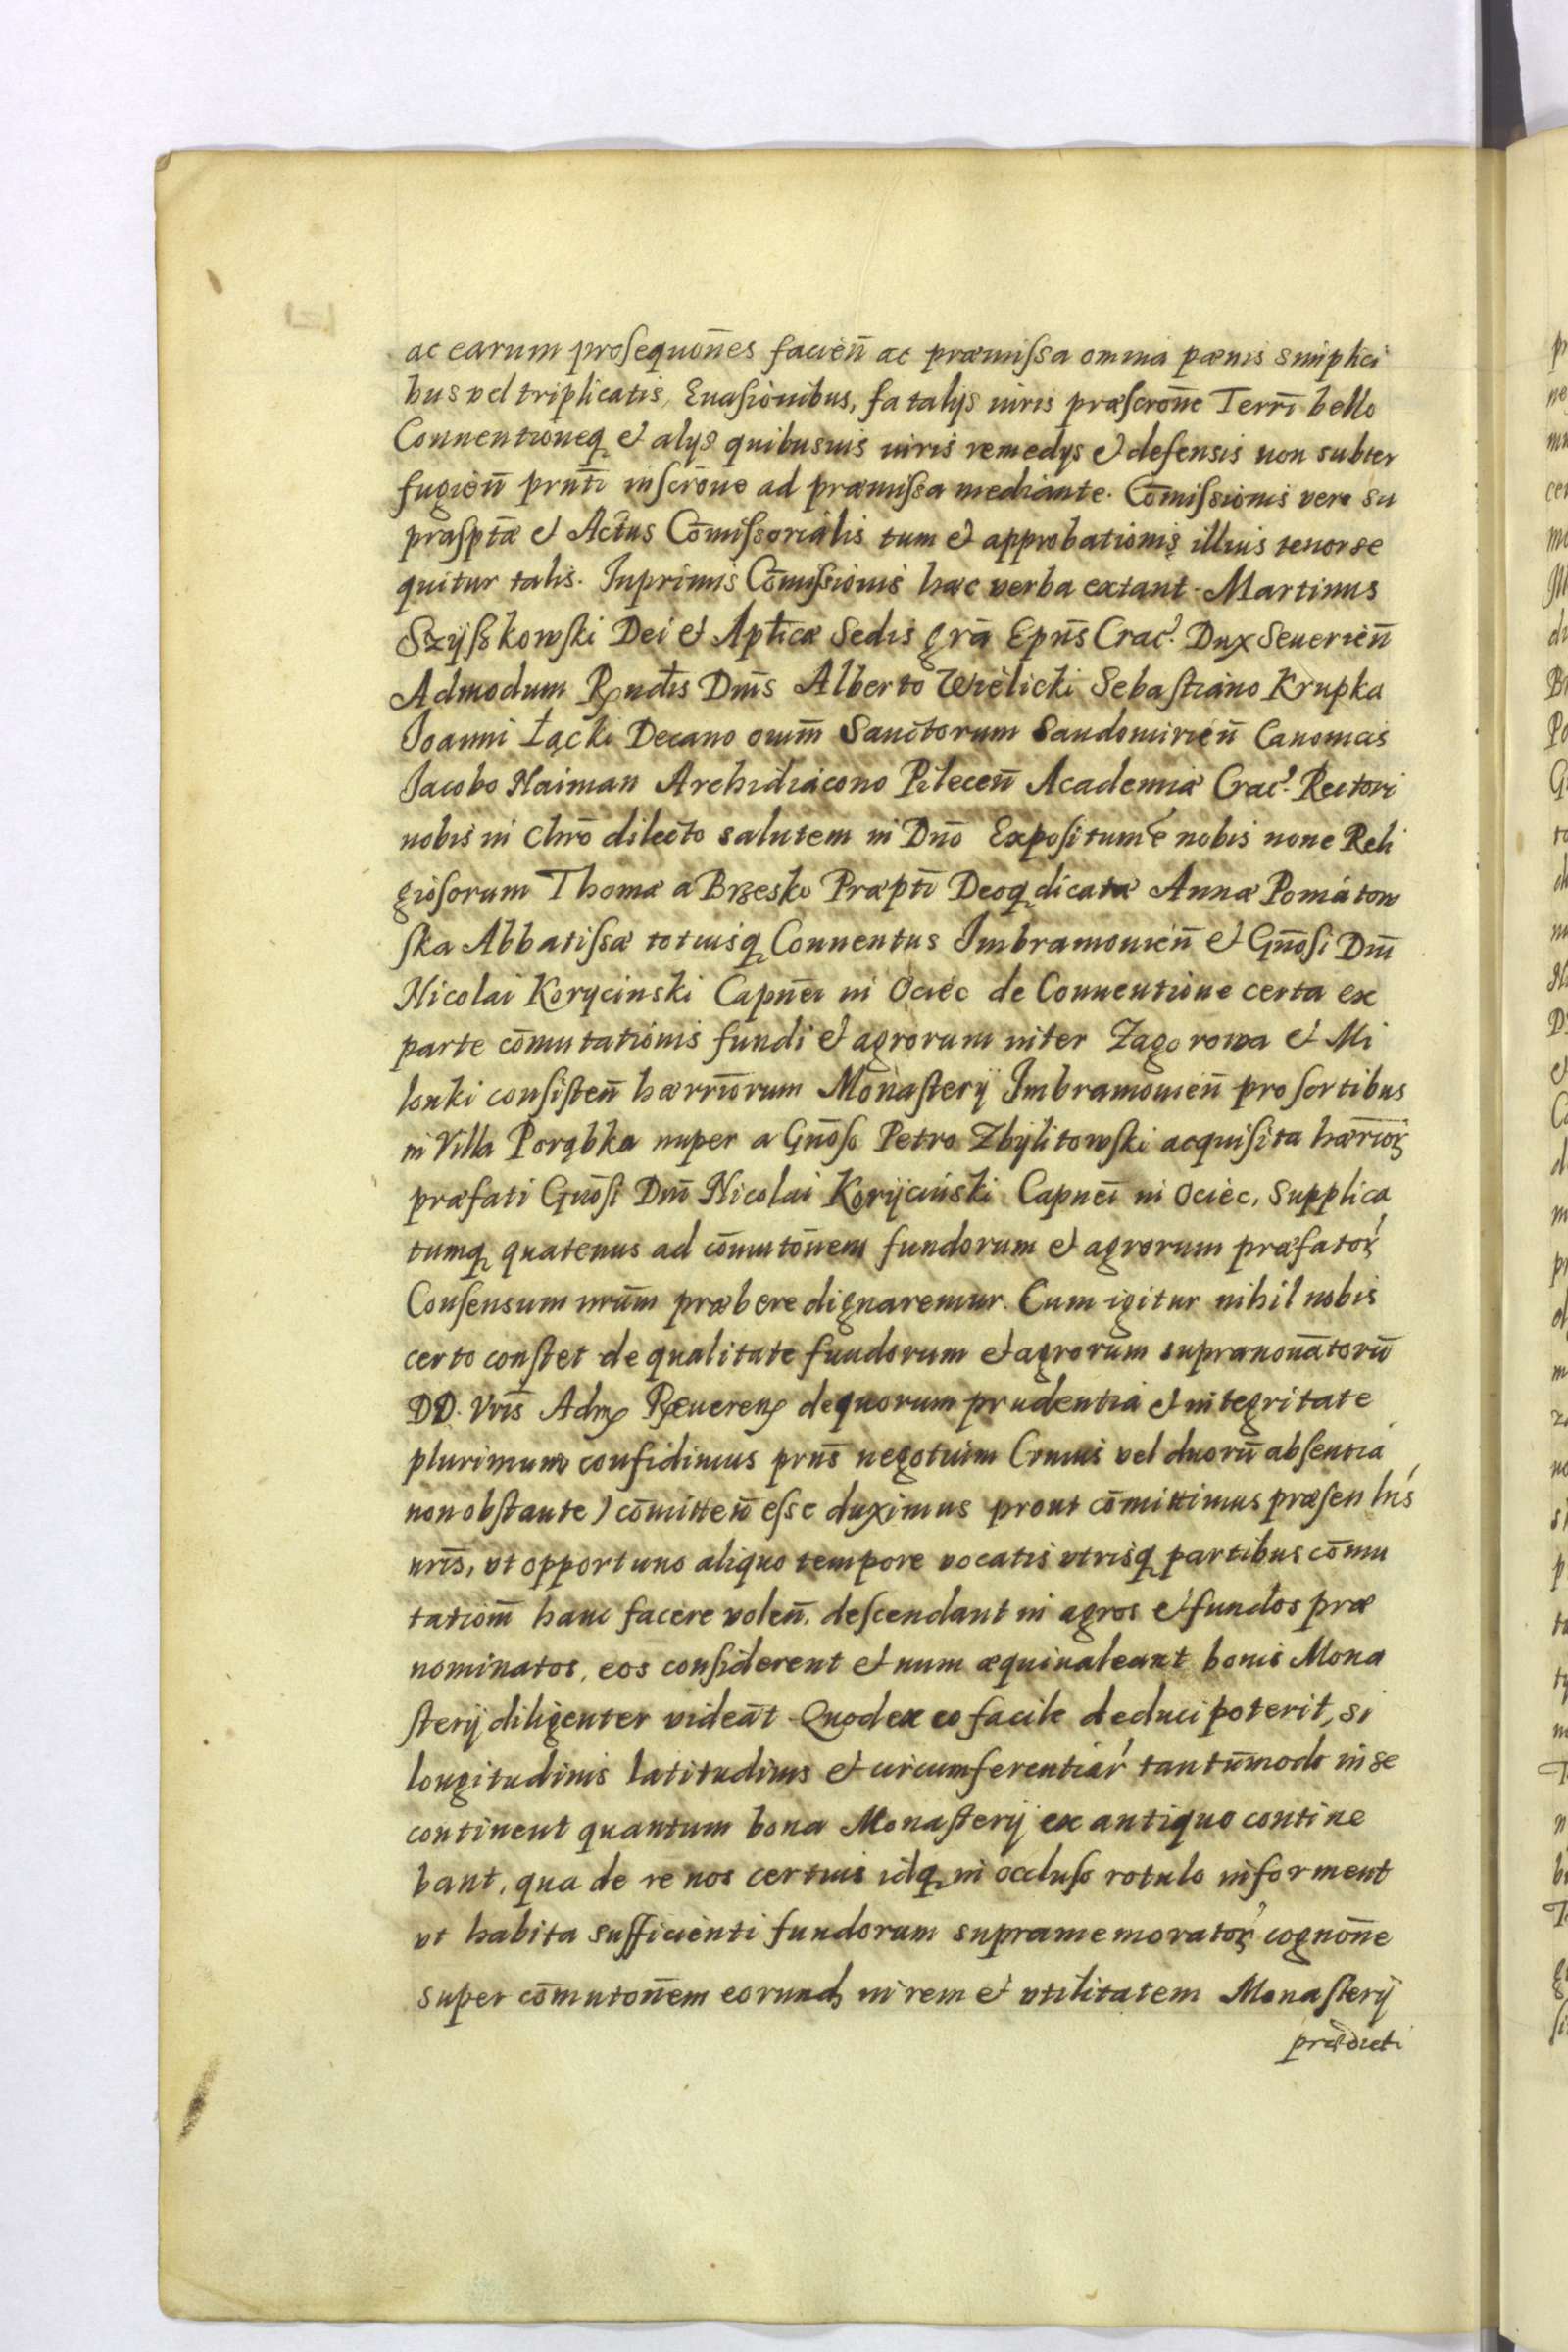 ac earum proſequōnes facien̄ ac præmiſsa omnia pænis simplici
bus vel triplicatis, Euaſionibus, fatalijs iuris præſcrōne Terrī bello
Conuentioneq, et alijs quibusuis iuris remedijs et defensis non subter
fugien̄ prntī inſcrōne ad præmiſsa mediante. Cōmiſsionis vero su
praſptæ et Actus Cōmiſsorialis tum et approbationis illius tenor se
quitur talis. Inprimis Cōmiſsionis hæc verba extant. Martinus
Szyſzkowſki Dei et Aptīcæ Sedis grā Epūs Crac. Dux Seuerien̄
Admodum Rndīs Dnīs Alberto Wielicki Sebaſtiano Krupka
Joanni Łącki Decano oniūm Sanctorum Sandomirien̄ Canonicis
Jacobo Naiman Archidiacono Pilecen̄ Academiæ Crac. Rectori
nobis in Chrō dilecto salutem in Dnō Expoſitum ē nobis noīne Reli
gioſorum Thomæ a Brzesko Præptī Deoq, dicatæ Annæ Poniatow
ſka Abbatiſsæ totiusq, Conuentus Imbramouien̄ et Gnōſi Dnī
Nicolai Korycinski Capnēi in Ociec de Conuentione certa ex
parte cōmutationis fundi et agrorum inter Zagorowa et Mi
lonki conſiſten̄ hærrīorum Monaſterij Imbramouien̄ pro ſortibus
in Villa Porąbka nuper a Gnōſo Petro Zbylitowſki acquiſita hærrīoꝝ
præfati Gnōſi Dnī Nicolai Koryciński Capnei in Ociec, Supplica
tumq, quatenus ad cōmutōnem fundorum et agrorum præfatoꝝ
Conſensum nrūm præbere dignaremur. Cum igitur nihil nobis
certo conſtet de qualitate fundorum et agrorum supranoīatorū
DD. Vrīs Adm Reueren de quorum prudentia et integritate
plurimum confidimus prns̄ negotium (vnius vel duorū abſentia
non obſtante) cōmitten̄ eſse duximus prout cōmittimus præſen lris
nrīs, vt opportuno aliquo tempore vocatis vtrisq, partibus cōmu
tatiom̄ hanc facere volen̄. deſcendant in agros et fundos præ
nominatos, eos conſiderent et num æquiualeant bonis Mona
ſterij diligenter videāt Quod ex eo facile deduci poterit, si
longitudinis latitudinis et circumferentiaꝝ tantūmodo in se
continent quantum bona Monaſterij ex antiquo contine
bant, qua de re nos certius idq, in occluſo rotulo informent
vt habita sufficienti fundorum suprame moratoꝝ cognōne
super cōmutōnem eorund, in rem et vtilitatem Monaſterij
prædicti